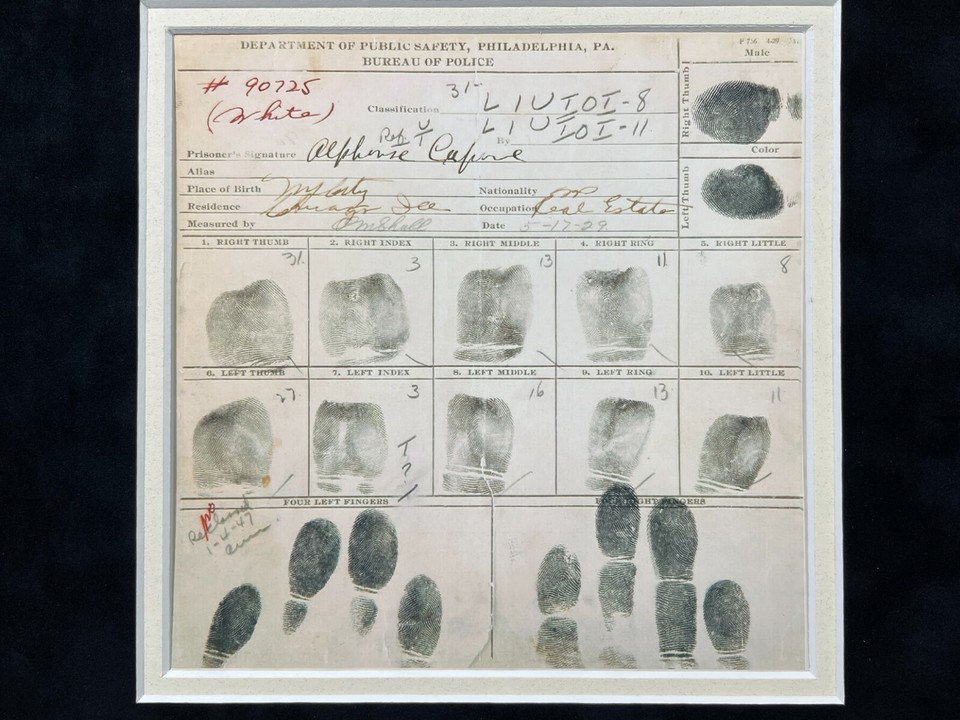 DEPARTMENT OF PUBLIC SAFETY, PHILADELPHIA, PA.
BUREAU OF POLICE
Male
# 90725
(White)
Classification 31- L 1 U I O I - 8
Ref. U/T L 1 U I O I - 11
By
Prisoner's Signature Alphonse Capone
Alias
Place of Birth N.Y. City Nationality
Residence Chicago Ill Occupation Real Estate
Measured by Date 5-17-29
Right Thumb
Color
Left Thumb
1. RIGHT THUMB 2. RIGHT INDEX 3. RIGHT MIDDLE 4. RIGHT RING 5. RIGHT LITTLE
31 3 13 11 8
6. LEFT THUMB 7. LEFT INDEX 8. LEFT MIDDLE 9. LEFT RING 10. LEFT LITTLE
27 3 16 13 11
T
?
FOUR LEFT FINGERS FOUR RIGHT FINGERS
1-4-47